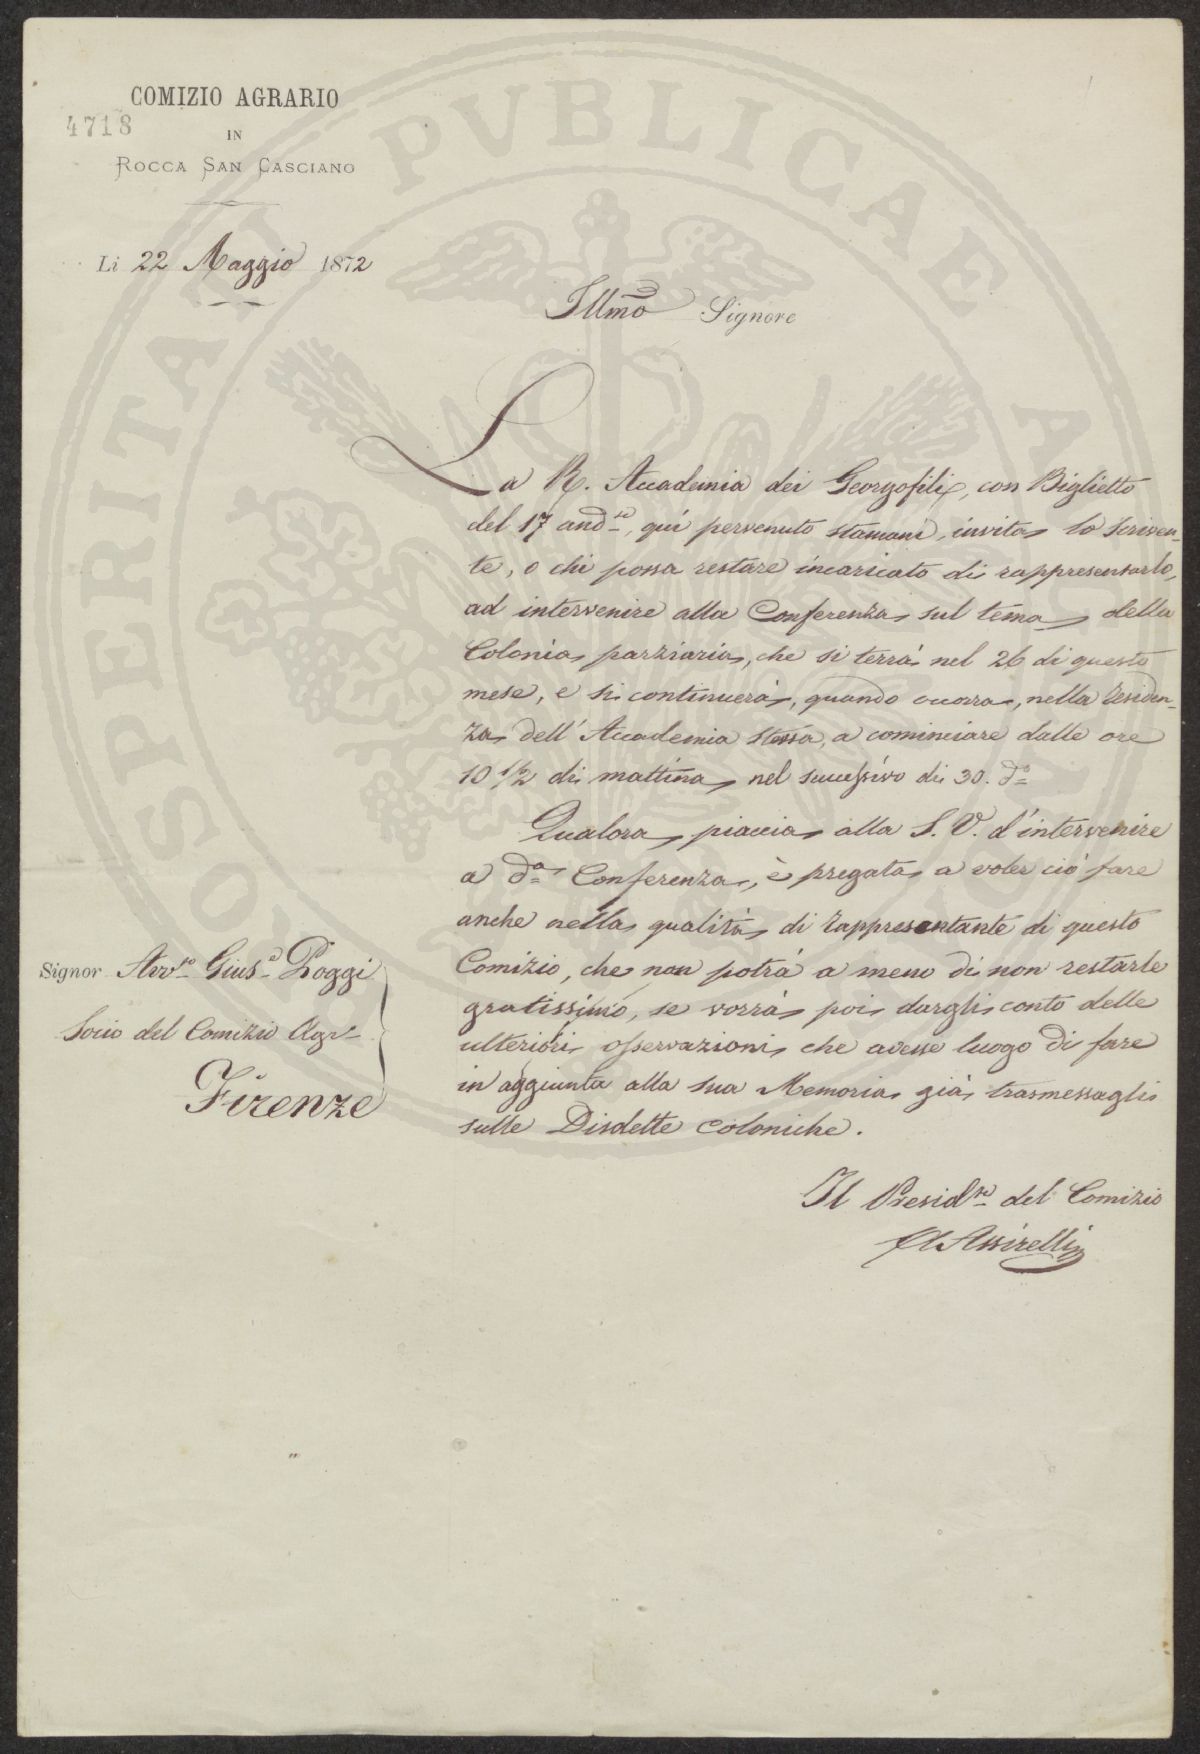 COMIZIO AGRARIO
4718
IN
ROCCA SAN CASCIANO
Li 22 Maggio 1872
Illmo Signore
La R. Accademia dei Georgofili, con Biglietto
del 17 andte, quì pervenuto stamani, invita lo Scriven-
te, o chi possa restare incaricato di rappresentarlo,
ad intervenire alla Conferenza sul tema della
Colonia parziaria, che si terrà nel 26 di questo
mese, e si continuerà, quando occorra, nella residen-
za dell'Accademia stessa, a cominciare dalle ore
10 1/2 di mattina nel successivo di 30. do
Qualora piaccia alla S. V. d'intervenire
a da Conferenza, è pregata a voler ciò fare
anche nella qualità di rappresentante di questo
Comizio, che non potrà a meno di non restarle
gratissimo, se vorrà poi dargli conto delle
ulteriori osservazioni che avesse luogo di fare
in aggiunta alla sua Memoria già trasmessagli
sulle Disdette coloniche.
Signor Avvto Giuse Poggi
Socio del Comizio Agro
Firenze
Il Preside del Comizio
Assirelli
PROSPERITATI PUBLICAE AUGENDAE